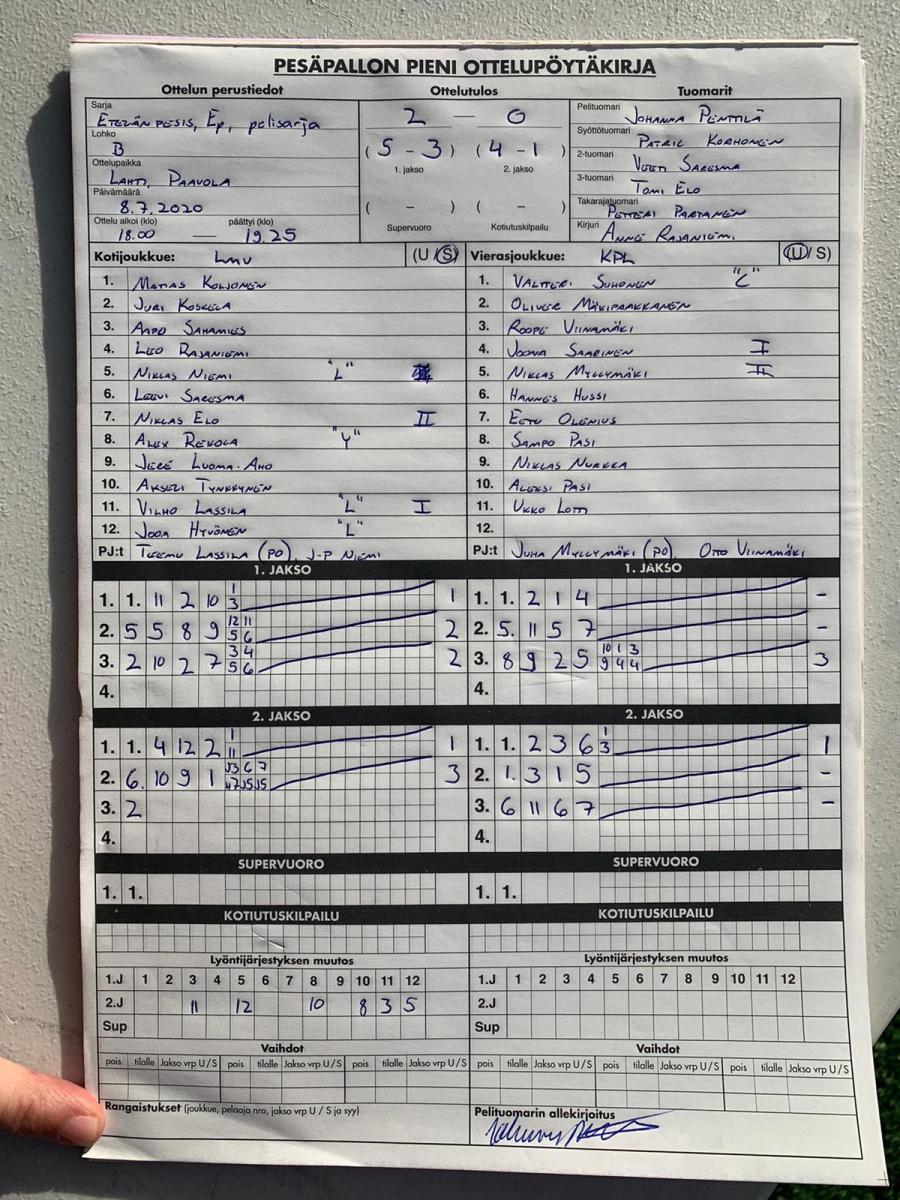 PESÄPALLON PIENI OTTELUPÖYTÄKIRJA
Ottelun perustiedot Ottelutulos Tuomarit
Sarja
ETELÄN PESIS, Ep, pelisarja
Lohko
B
Ottelupaikka
LAHTI, PAAVOLA
Päivämäärä
8.7.2020
Ottelu alkoi (klo) päättyi (klo)
18.00 — 19.25
2 — 0
(5 - 3) (4 - 1)
1. jakso 2. jakso
( - ) ( - )
Supervuoro Kotiutuskilpailu
Pelituomari JOHANNA PENTTILÄ
Syöttötuomari PATRIC KORHONEN
2-tuomari VEETI SARESMA
3-tuomari TOMI ELO
Takarajatuomari PETTERI PARTANEN
Kirjuri ANNE RAJANIEMI
Kotijoukkue: LMV (U / S)
1. MATIAS KOLJONEN
2. JURI KOSKELA
3. AAPO SAHAMIES
4. LEO RAJANIEMI
5. NIKLAS NIEMI "L"
6. LEEVI SARESMA
7. NIKLAS ELO II
8. ALEX REKOLA "Y"
9. JERE LUOMA-AHO
10. AKSELI TYNKKYNEN
11. VILHO LASSILA "L" I
12. JOOA HYVÖNEN "L"
PJ:t TEEMU LASSILA (PO), J-P NIEMI
Vierasjoukkue: KPL (U / S)
1. VALTTERI SUHONEN "C"
2. OLIVER MÄKIPAAKKANEN
3. ROOPE VIINAMÄKI
4. JOONA SAARINEN I
5. NIKLAS MYLLYMÄKI II
6. HANNES HUSSI
7. EETU OLENIUS
8. SAMPO PASI
9. NIKLAS NURKKA
10. ALEKSI PASI
11. UKKO LOTTI
12.
PJ:t JUHA MYLLYMÄKI (PO), OTTO VIINAMÄKI
1. JAKSO
1. 1. 11 2 10 1 3 1
2. 5 5 8 9 12 11 5 6 2
3. 2 10 2 7 3 4 5 6 2
4.
1. JAKSO
1. 1. 2 1 4 -
2. 5. 11 5 7 -
3. 8 9 2 5 10 1 3 9 4 4 3
4.
2. JAKSO
1. 1. 4 12 2 1 11 1
2. 6. 10 9 1 6 7 3
3. 2
4.
2. JAKSO
1. 1. 2 3 6 1 3 1
2. 1. 3 1 5 -
3. 6 11 6 7 -
4.
SUPERVUORO
1. 1.
SUPERVUORO
1. 1.
KOTIUTUSKILPAILU
KOTIUTUSKILPAILU
Lyöntijärjestyksen muutos
1.J 1 2 3 4 5 6 7 8 9 10 11 12
2.J 11 12 10 8 3 5
Sup
Lyöntijärjestyksen muutos
1.J 1 2 3 4 5 6 7 8 9 10 11 12
2.J
Sup
Vaihdot
pois tilalle Jakso vrp U/S pois tilalle Jakso vrp U/S pois tilalle Jakso vrp U/S
Vaihdot
pois tilalle Jakso vrp U/S pois tilalle Jakso vrp U/S pois tilalle Jakso vrp U/S
Rangaistukset (joukkue, pelaaja nro, jakso vrp U / S ja syy)
Pelituomarin allekirjoitus